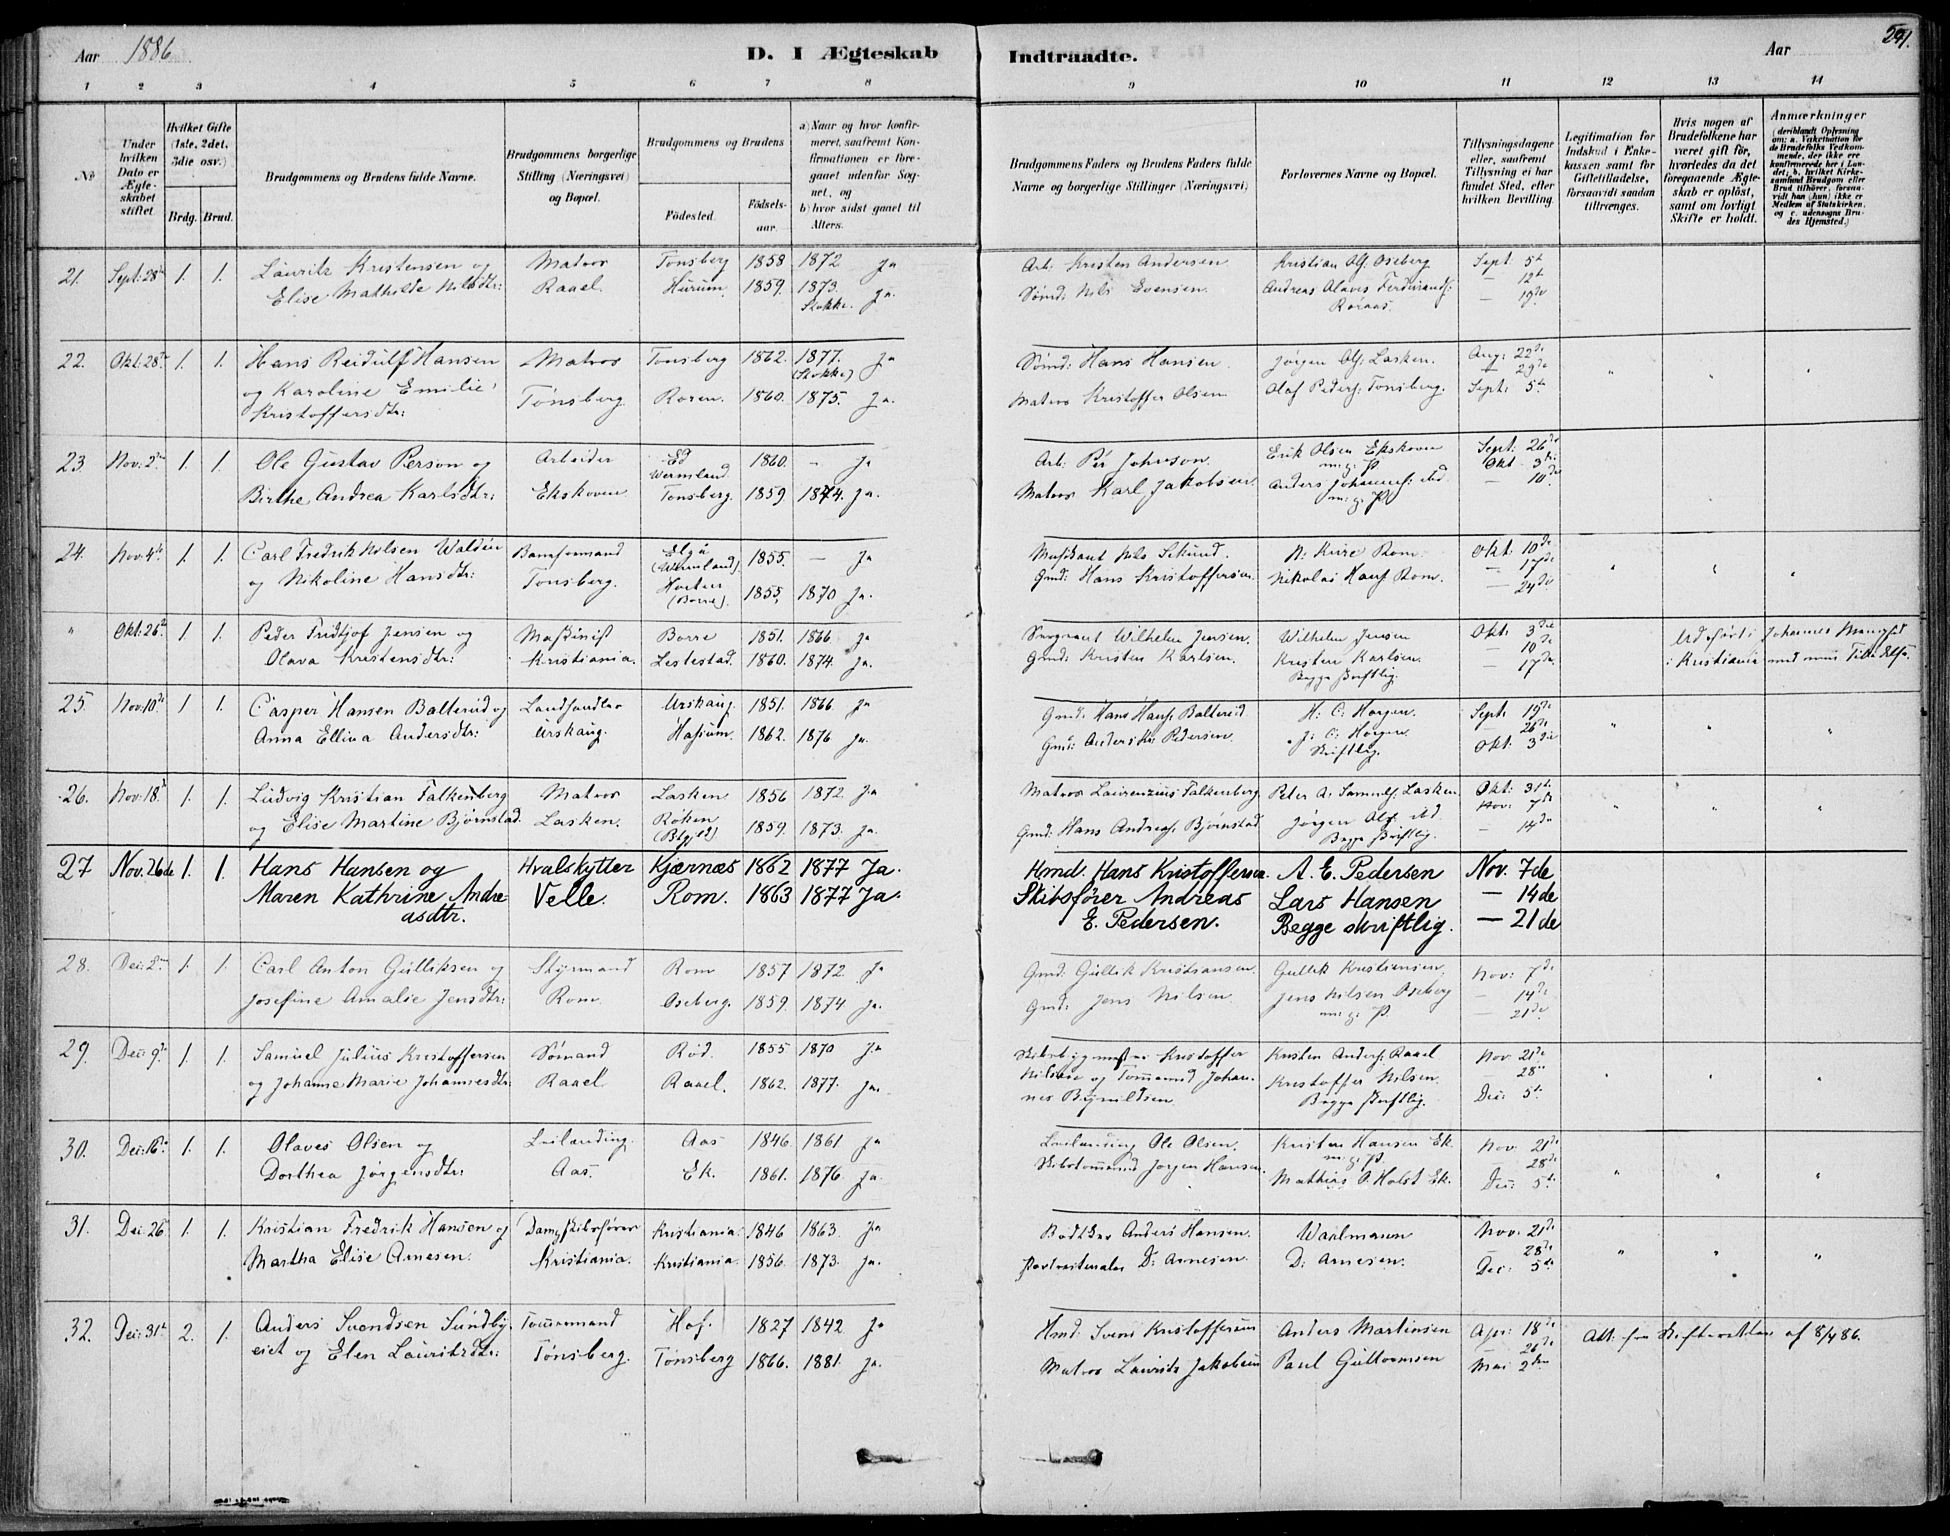 Aar 1886
D. I Ægteskab Indtraadte.
Aar
291.
1 2 3 4 5 6 7 8 9 10 11 12 13 14
No
Under hvilken Dato er Ægteskabet stiftet.
Hvilket Gifte (1ste, 2det, 3die osv.)
Brdg. Brud.
Brudgommens og Brudens fulde Navne.
Brudgommens borgerlige Stilling (Næringsvei) og Bopæl.
Brudgommens og Brudens
Födested.
Födselsaar.
a) Naar og hvor konfirmeret, saafremt Konfirmationen er foregaaet udenfor Sognet, og
b) hvor sidst gaaet til Alters.
Brudgommens Faders og Brudens Faders fulde Navne og borgerlige Stillinger (Næringsvei)
Forlovernes Navne og Bopæl.
Tillysningsdagene eller, saafremt Tillysning ei har fundet Sted, efter hvilken Bevilling.
Legitimation for Indskud i Enkekassen samt for Giftetilladelse, forsaavidt saadan tiltrænges.
Hvis nogen af Brudefolkene har været gift før, hvorledes da det foregaaende Ægteskab er opløst, samt om lovligt Skifte er holdt.
Anmærkninger
21. Sept. 28de 1. 1. Lauritz Kristensen og Matros Tønsberg 1858 1872 Ja Arb. Kristen Andersen Kristian Olf. Oseberg Sept. 5te
Elise Mathilde Nilsdtr: Raael. Hurum 1859. 1873. Stokke. Ja. Sømd: Nils Evensen. Andreas Olaves Ferdinands: Raraas. — 12te — 19de
22. Okt: 28de 1. 1. Hans Reidulf Hansen Matros Tønsberg 1862. 1877. (Stokke) Ja Sømd: Hans Hansen. Jørgen Ols: Lasken. Aug: 22de — 29de
og Karoline Emilie Kristoffersdtr: Tønsberg Roren. 1860. 1875. Ja. Matros Kristoffer Olsen Olaf Peders: Tønsberg. Sept: 5te
23. Nov: 2den 1. 1. Ole Gustav Person og Arbeider Ed Wermland. 1860. — Ja Arb: Per Johnson. Erik Olsen Ekskoven m. g. P. Sept: 26de Okt 3die
Birthe Andrea Karlsdtr: Ekskoven Tønsberg. 1859 1874. Ja. Matros Karl Jakobsen. Anders Johannes: ibd. m. g. P. — 10de
24. Nov: 4de 1. 1. Carl Fredrik Nilsen Waldin Tønsberg. (Wermland). 1855. — Ja Nils Sekund. Rom. Okt: 10de — 17de
og Nikoline Hansdtr: Horten (Borre). 1855, 1870 Ja. Gmd: Hans Kristoffersen. Nikolai Hans: Rom. — 24de
" Okt: 26de 1. 1. Peder Fridtjof Jensen og Maskinist Borre 1851. 1866. Ja Sergeant Wilhelm Jensen. Wilhelm Jensen Okt: 3die — 10de Udført i Johannes Menighed
Olava Kristensdtr: Kristiania. Lestestad. 1860. 1874. Ja. Gmd: Kristen Karlsen. Kristen Karlsen. Begge skriftlig. — 17de i Kristiania med min Tilladelse.
25. Nov: 10de 1 1. Casper Hansen Balterud og Landhandler Urskaug. 1851. 1866 Ja Gmd: Hans Hans: Balterud. H: C: Horgen. Sept: 19de — 26de
Anna Ellina Andersdtr: Urskaug. 1862. 1876 Ja. Gmd: Anders Kr: Pedersen. J: C: Horgen Skriftlig. Okt: 3die
26. Nov: 18de 1. 1. Ludvig Kristian Falkenberg Matros Lasken 1856 1872. Ja Matros Laurenzius Falkenberg Peter A: Samuels: Lasken Okt: 31te Nov: 7de
og Elise Martine Bjørnstad. Lasken. Røken 1859. 1873. Ja. Gmd: Hans Andreas: Bjørnstad Jørgen Ols: ibd. Begge Skriftlig. — 14de
27 Nov. 26de 1. 1. Hans Hansen og Hvalskytter Kjærnæs 1862 1877 Ja. Hmd. Hans Kristoffersen. A. E. Pedersen Nov. 7de
Maren Kathrine Andre- Velle. Rom. 1863 1877 Ja. Skibsfører Andreas Lars Hansen — 14de
asdtr. E. Pedersen. Begge skriftlig. — 21de
28. Dec: 2den 1. 1. Carl Anton Gulliksen og Styrmand Rom 1857 1872. Ja Gmd: Gullik Kristiansen. Gullik Kristiansen. Nov: 7de
Josefine Amalie Jensdtr: Rom. Oseberg. 1859. 1874 Ja. Gmd: Jens Nilsen Jens Nilsen Oseberg m. g. P. — 14de — 21de
29. Dec: 9de 1. 1. Samuel Julius Kristoffersen Sømand Rød. 1855 1870 Ja Skibsbygmester Kristoffer Kristen Anders: Raael Nov. 21de — 28de
og Johanne Marie Johannesdtr: Raael Raael. 1862. 1877. Ja. Nilsen og Tømmermd Johannes Brynildsen Kristoffer Nilsen. Begge skriftlig. Dec: 5te
30. Dec: 16de 1. 1. Olaves Olsen og Leilænding. Aas 1846. 1861 Ja Leilænding Ole Olsen. Kristen Hansen Ek. m. g. P. Nov. 21de — 28de
Dorthea Jørgensdtr: Aas. Ek. 1861. 1876. Ja. Skibstømmermd Jørgen Hansen. Mathias P. Holst Ek. Dec: 5te
31. Dec: 26 1. 1. Kristian Fredrik Hansen og Dampskibsfører Kristiania. 1846 1863. Ja Anders Hansen. Warlmann Nov: 21de — 28de
Martha Elise Arnesen. Kristiania. Kristiania. 1856. 1873. Ja. Portrætmaler D: Arnesen. D: Arnesen. Dec: 5te
32. Dec: 31te 2. 1. Anders Svendsen Sundby- Tømmermand Hof. 1827 1842 Ja Hmd: Svend Kristoffersen Anders Martinsen Apr: 18de — 26de Att: fra Skifteretten af 8/4 86.
eiet og Elen Lauritzdtr: Tønsberg. Tønsberg 1866. 1881. Ja. Matros Lauritz Jakobsen Paul Guttormsen Mai 2den